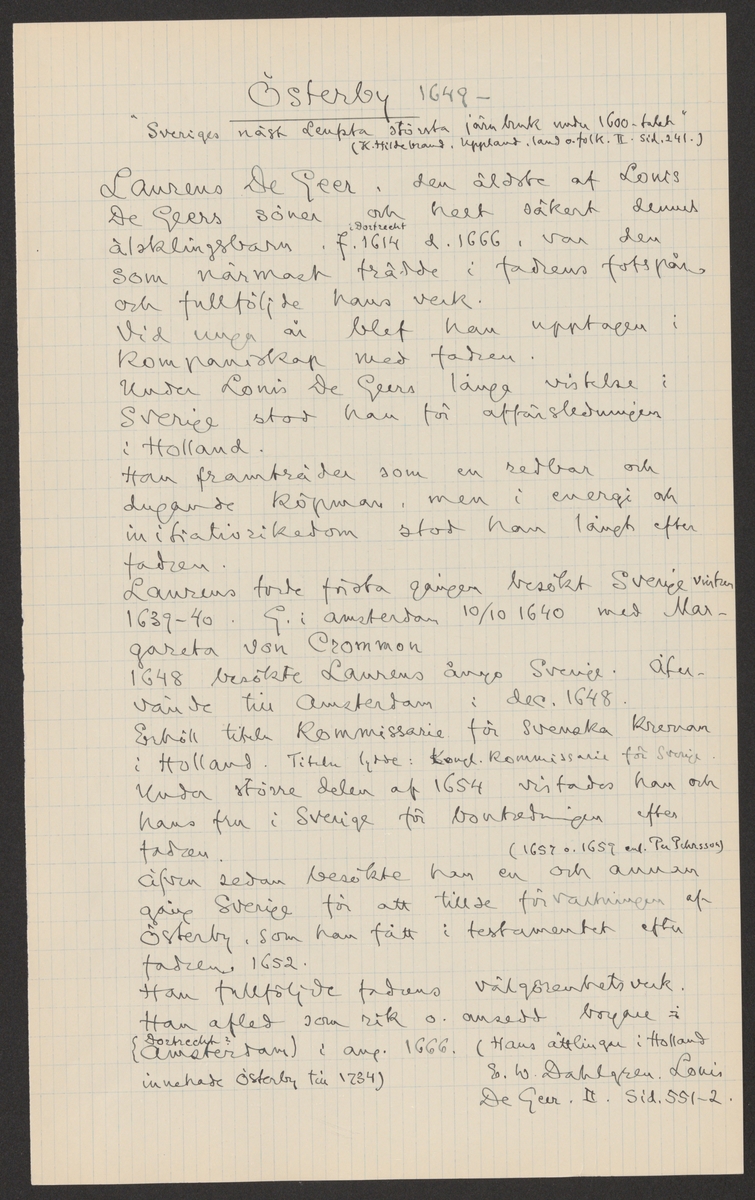 Österby 1649 –
"Sveriges näst Leufsta största järnbruk under 1600-talet"
(K. Hildebrand. Uppland, land o. folk. II. Sid. 241.)
Laurens De Geer, den äldste af Louis
De Geers söner och helt säkert dennes
i Dortrecht
älsklingsbarn, f. 1614 d. 1666, var den
som närmast trädde i fadrens fotspår
och fullföljde hans verk.
Vid unga år blef han upptagen i
kompaniskap med fadren.
Under Louis De Geers långe vistelse i
Sverige stod han för affärsledningen
i Holland.
Han framträder som en redbar och
dugande köpman, men i energi och
initiativrikedom stod han långt efter
fadren.
Laurens torde första gången besökt Sverige vintern
1639–40. G. i Amsterdam 10/10 1640 med Mar-
gareta von Crommon
1648 besökte Laurens ånyo Sverige. Åter-
vände till Amsterdam i dec. 1648.
Erhöll titeln Kommissarie för Svenska Kronan
i Holland. Titeln lydde: Kongl. Kommissarie för Sverige.
Under större delen af 1654 vistades han och
hans fru i Sverige för boutredningen efter
fadren. (1657 o. 1659 enl. Per Pehrsson)
Äfven sedan besökte han en och annan
gång Sverige för att tillse förvaltningen af
Österby, som han fått i testamentet efter
fadren 1652.
Han fullföljde fadrens välgörenhetsverk.
Han afled som rik o. ansedd borgare i
Dortrecht?
(Amsterdam) i aug. 1666. (Hans ättlingar i Holland
innehade Österby till 1734)
E. W. Dahlgren. Louis
De Geer. II. Sid. 551–2.